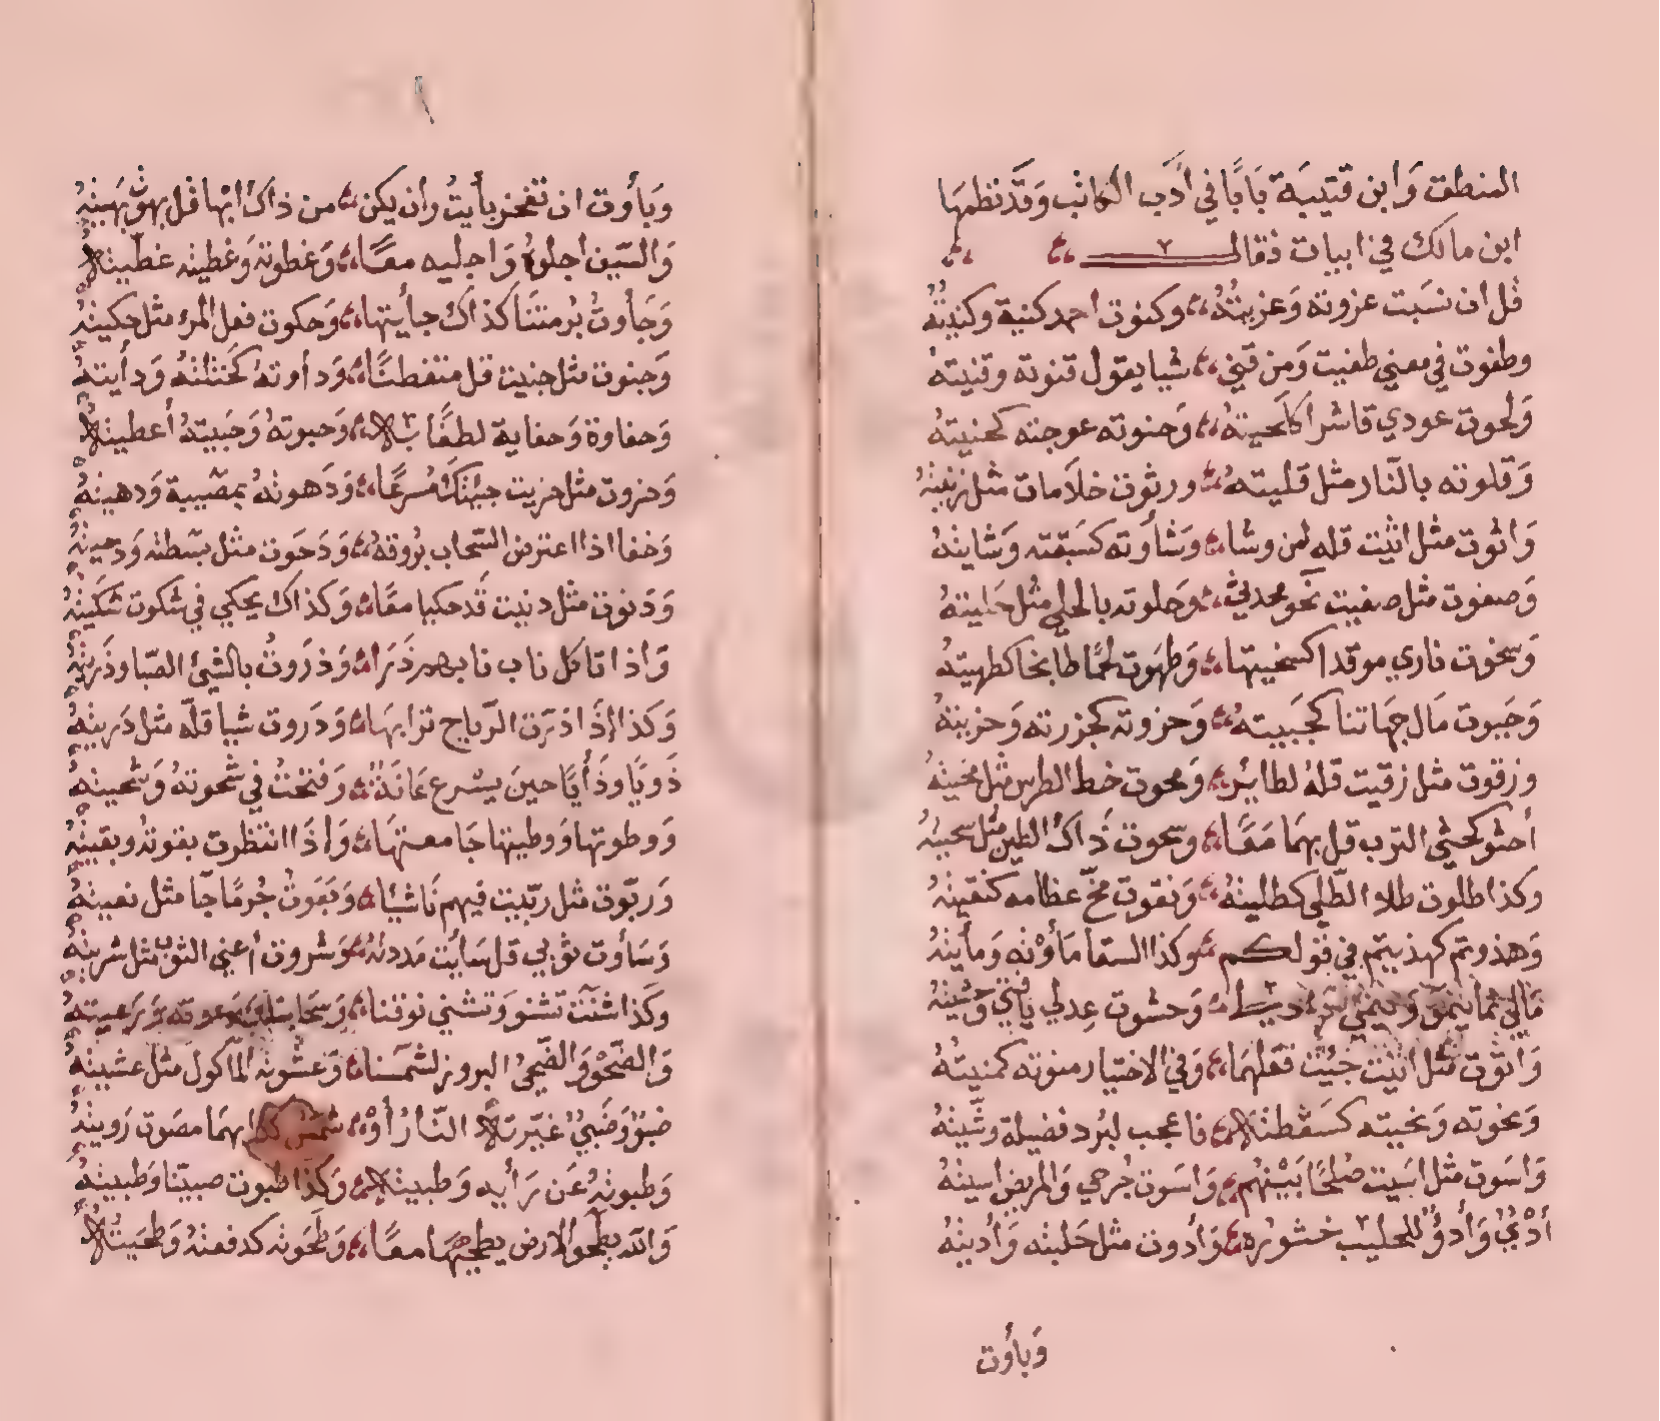 المنطق وَابن قتيبَة بَابًا في أدَب الكاتب وَقَد نظمهَا
ابن مالك في ابيات فقال
قل ان نسَبت عزوته وَعزيتُهُ وكنوت احمد كنية وكنيتُهُ
وطغوت في معنى طغيت وَمن قنى شيا يقول قنوته وقنيتهُ
وَلحوت عودي قاشرا كلَحيتهُ وَحنوته عوجته كحنيتهُ
وَقلوته بالنّار مثل قليتهُ ورثوت خلاًمات مثل رثيتهُ
وَاثوت مثل اثيت قله لمن وشا وَشأوته كسَبقته وَشايتهُ
وَصغوت مثل صغيت نحو محدثي وَحلوته بالحلي مثل حَليتهُ
وَسخوت ناري موقدا كسخيتها وَطهَوت لحمًا طابخا كطهيتهُ
وَجَبوت مَال جهَاتنا كجَبيتهُ وَحزوته كجزرته وَحزيتهُ
وزقوت مثل زقيت قلهُ لطايرٍ وَمحوت خط الطرس مثل محيتهُ
أحثو كحثي الترب قل بهمَا مَعًا وسحوت ذَاك الطين مثل سحيتهُ
وكذا طلوت طلا الطّلي كطليتهُ وَنقوت مخّ عظامه كنقيتهُ
وَهذوتم كهذيتم في قولكم وكذا السقا مَأوْته وَمأيتهُ
مَالي نما ينمو وَينمي وَحشوت عِدلي يافتي وَحشيتهُ
وَاتَوت مثل اتَيْت جيُت فقلهمَا وَفي الاختيار منوته كمنيتُهُ
وَنحوته وَنحيته كسَقطنا فاعجب لبُرد فضيلة وشيتهُ
وَاسَوت مثل اسَيت صُلحًا بَيْنهُم وَاسَوت جُرحي وَالمريض اسيتهُ
أدْيُ وَأدوٌ للحليب خشورُه وَأدوت مثل خَليته وَأديتهُ
وَبأوت
وَبأوت ان تفخر بأيتُ وان يكن من ذاك ابهَا قل بهوْت بَهَيتهُ
وَالسّيف اجلوهُ وَاجليه معًا وَغطوته وَغطيته غطّيتهُ
وَجَأوتُ بُرمتنَا كذاك جأيتها وَحكوت فعل المرء مثل حكيتهُ
وَجنوت مثل جنيت قل متفطنًا وَدأوتهُ كختلتهُ وَدأيتهُ
وَحفاوة وَحفاية لطفًا به وَحبوتهُ وَحَبيتهُ أعطيتهُ
وَحزوت مثل حزيت جيئتك مُسرعًا وَدَهوتهُ بمصيبة وَدهيتهُ
وَخفا اذا اعترض السّحاب بُروقهُ وَدَحَوت مثل بسَطته وَدحيتهُ
وَدَنوت مثل دنيت قَد حكيا معًا وَكذاك يحكي في شكوت شكَيتهُ
وَاذا تاكل ناب نابهم ذَرَا وَذرَوتُ بالشيء الصّبا وذَريتهُ
وَكذا اذَا ذرَت الرّياح ترابهَا وَدَروت شيا قلّه مثل دَريتهُ
ذَويَا وذَأيَا حينَ يسْرع عَانَة وَفتحتُ في شَحوتهُ وَشَحيتهُ
وَوطوتها وَوطيتها جَامعتهَا وَاذَا انتظرت بقوتهُ وبقيتهُ
وَربّوت مثل ربّيت فيهم نَاشيًا وَبَعَوتُ جُرمًا جَا مثل بعيتهُ
وَسَأوت ثوبي قل سَأيت مَددتهُ وَشروت أعني الثوب مثل شريتهُ
وَكذا شنت تشنو وَتشني نوقنا وَرَعيتهُ
وَالضّحْو وَالضّحيُ البروز لشمْسنا وَعشَوته المأكول مثل عشيتهُ
ضبْوٌ وَضَبيٌ غيّرتهُ النّارُ أوْ شمسٌ كذا بهمَا مضوت رَويتهُ
وَطبوتهُ عَن رَأيه وَطبيتهُ وَكذا طبوت صبيّنا وَطبيتهُ
وَالله يطحو الارض يطحيهَا معًا وَطَحَوته كدفعتهُ وَطحَيتُهُ